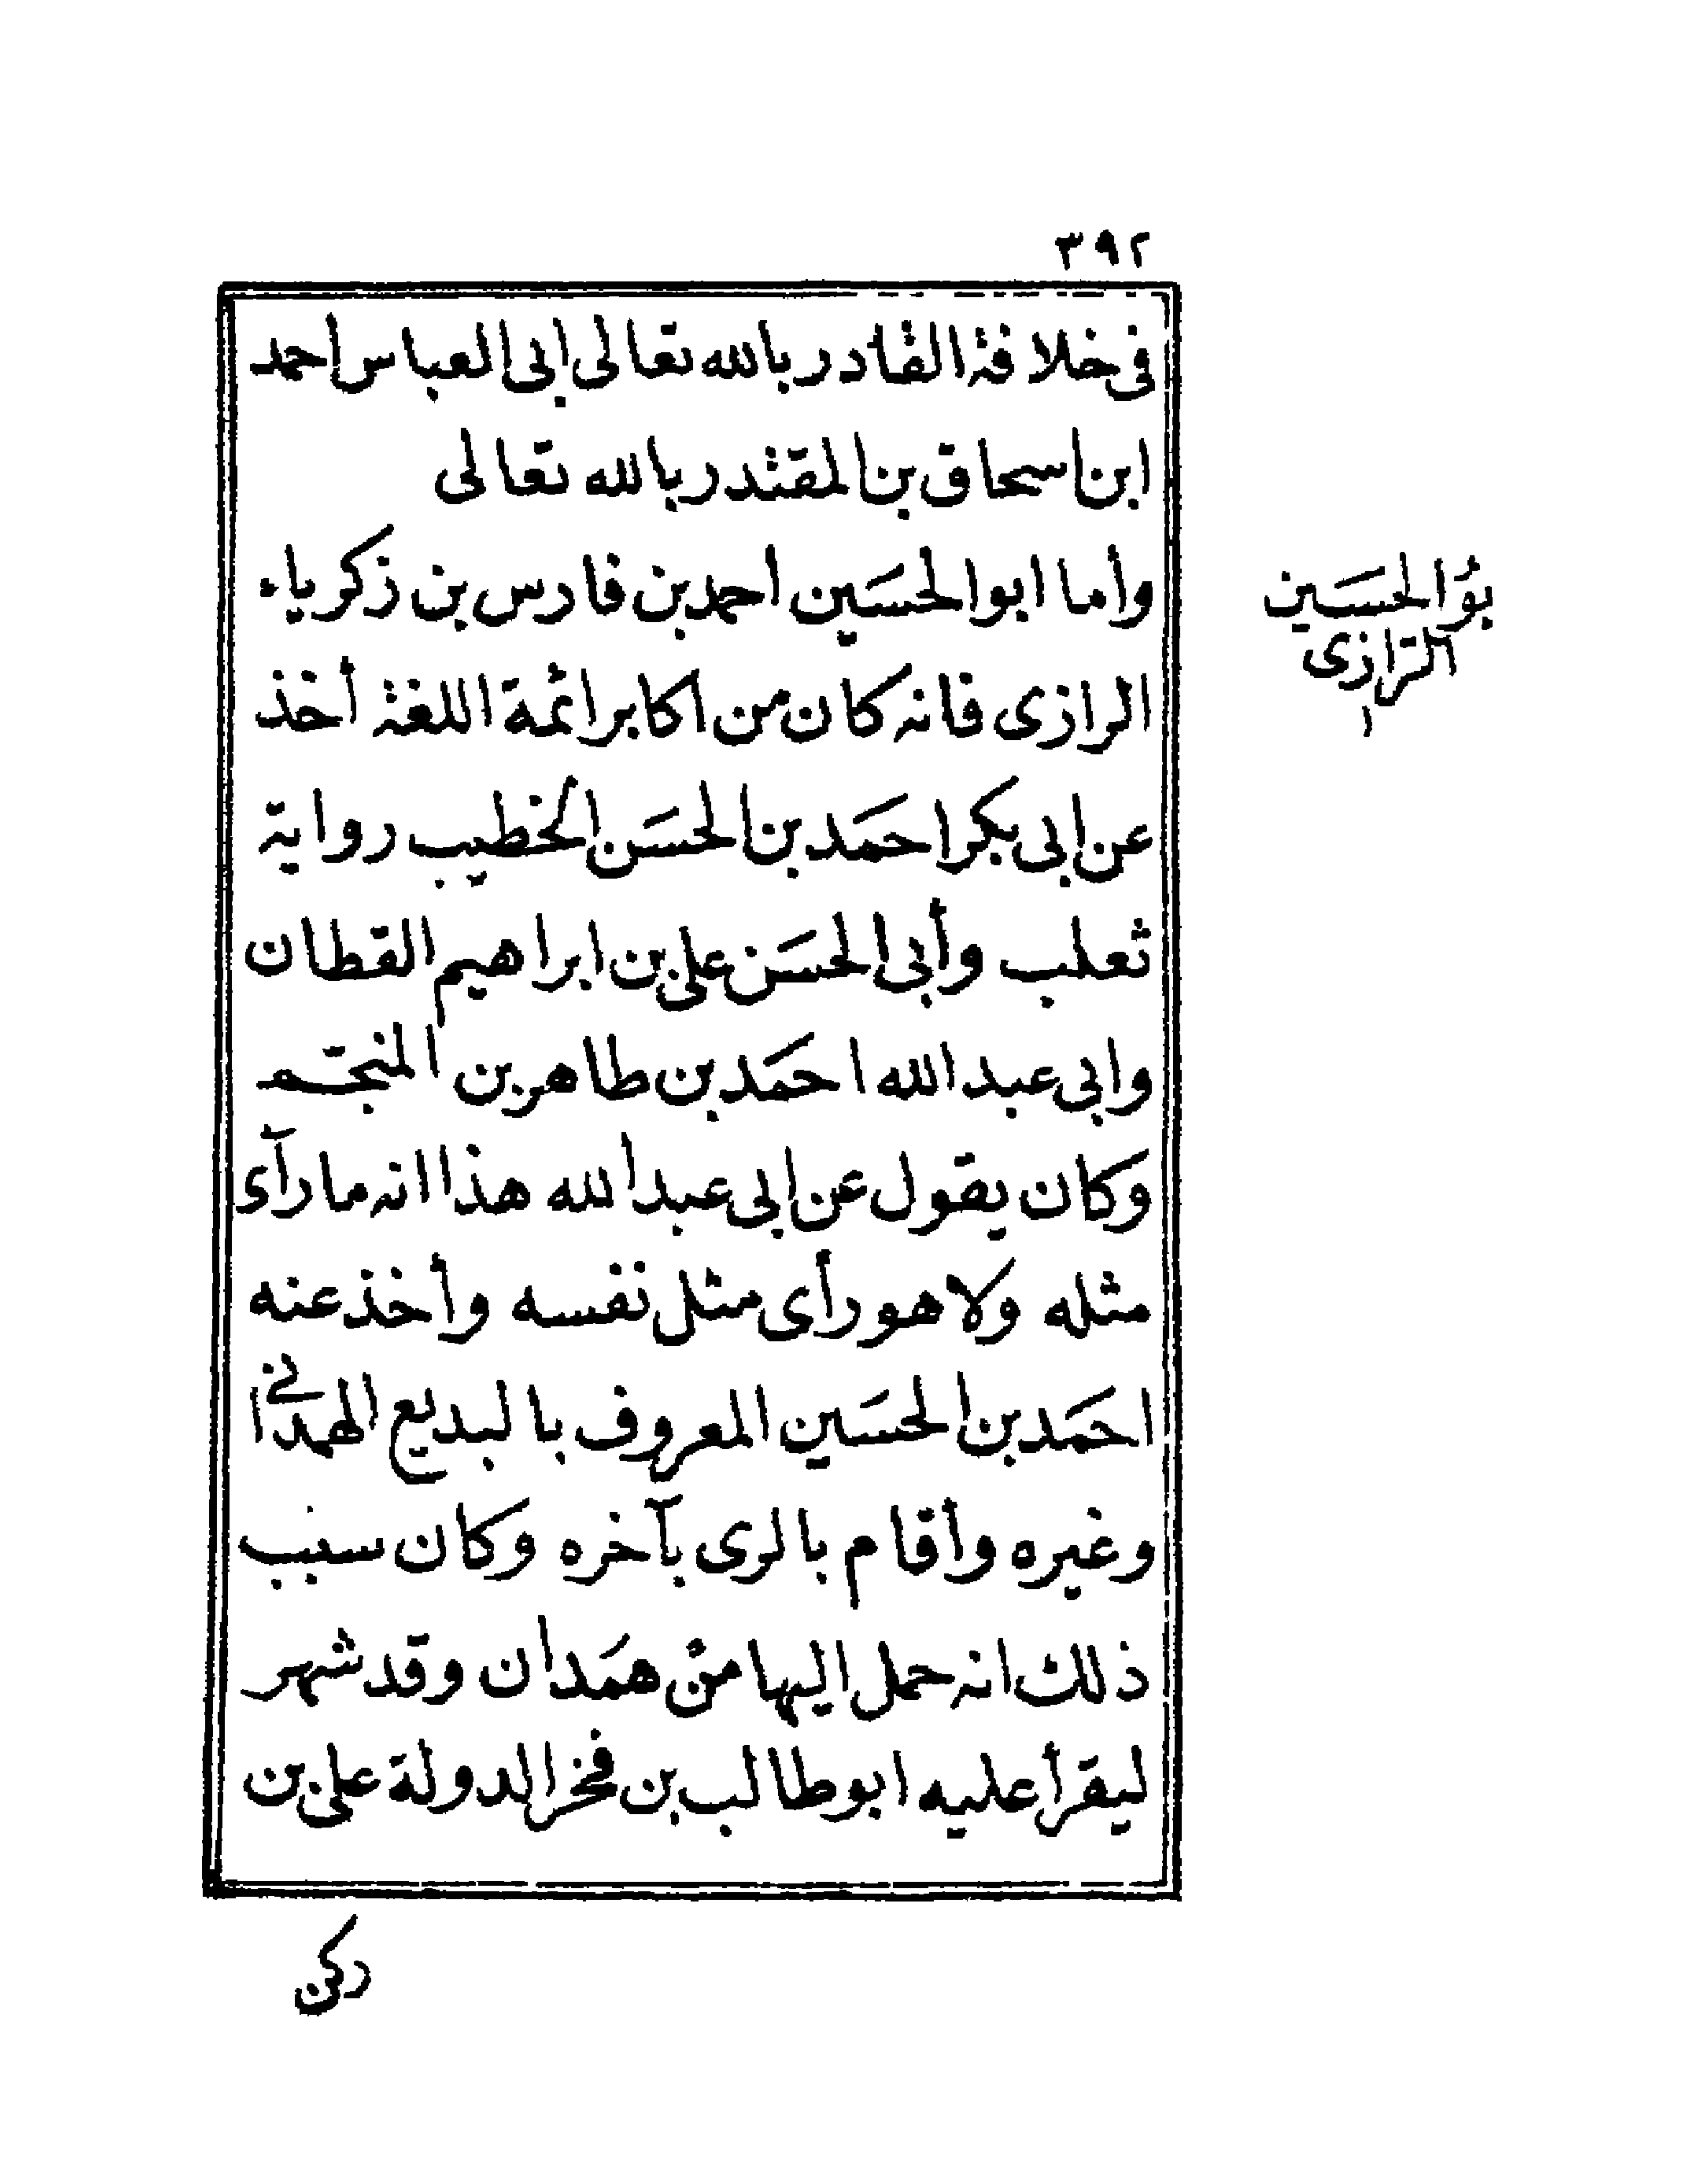 ٣٩٢
فى خلافة القادر بالله تعالى ابى العباس احمد
ابن اسحاق بن المقتدر بالله تعالى
وأما ابو الحسَين احمد بن فارس بن زكرياء
بو الحسَين
الرازى
الرازى فانه كان من اكابر ائمة اللغة أخذ
عن ابى بكر احمَد بن الحسَن الخطيب رواية
ثعلب وأبى الحسَن على بن ابراهيم القطان
وابى عبد الله احمَد بن طاهر بن المنجم
وكان يقول عن ابى عبد الله هذا انه ما رآى
مثله ولا هو رأى مثل نفسه وأخذ عنه
احمَد بن الحسَين المعروف بالبديع الهمدانى
وغيره وأقام بالرى بآخره وكان سبب
ذلك انه حمل اليها من همَدان وقد شهر
ليقرأ عليه ابو طالب بن فخر الدولة على بن
ركن